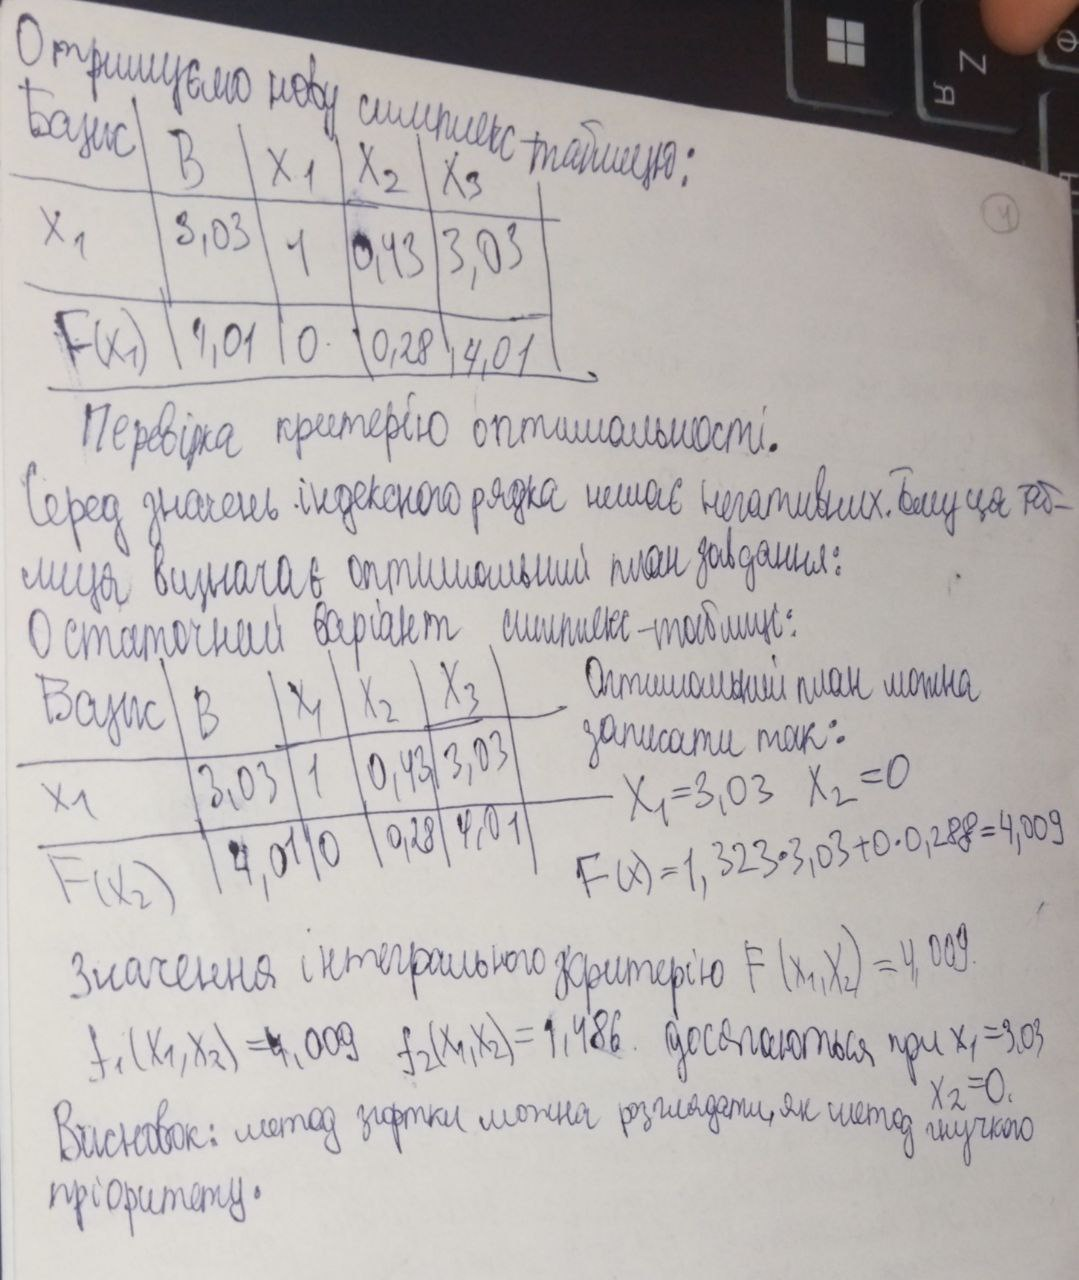 Z
Я
Ф
4
Отримуємо нову симплекс-таблицю:
Базис B X1 X2 X3
X1 3,03 1 0,43 3,03
F(X1) 4,01 0 0,28 4,01
Перевірка критерію оптимальності.
Серед значень індексного рядка немає негативних. Тому ця таб-
лиця визначає оптимальний план завдання:
Остаточний варіант симплекс-таблиці:
Базис B X1 X2 X3
X1 3,03 1 0,43 3,03
F(X2) 4,01 0 0,28 4,01
Оптимальний план можна
записати так:
X1=3,03 X2=0
F(x)=1,323·3,03+0·0,288=4,009
Значення інтегрального критерію F(x1,X2)=4,009.
f1(X1,X2)=4,009 f2(X1,X2)=1,486. досягаються при x1=3,03
x2=0.
Висновок: метод згортки можна розглядати, як метод гнучкого
пріоритету.